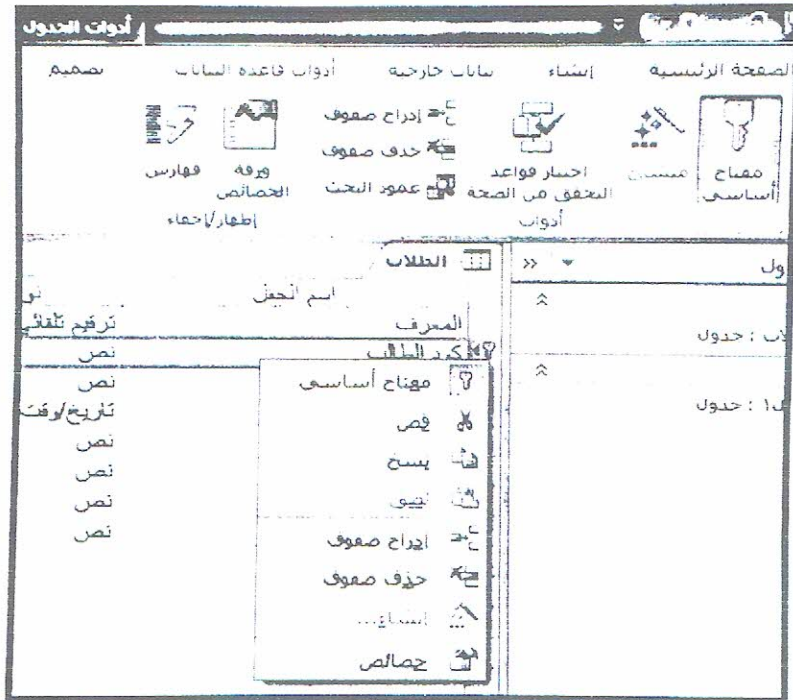 أدوات الجدول
الصفحة الرئيسية إنشاء بيانات خارجية أدوات قاعدة البيانات تصميم
مفتاح أساسي
اختبار قواعد التحقق من الصحة
إدراج صفوف
حذف صفوف
عمود البحث
ورقة الخصائص
فهارس
أدوات
إظهار/إخفاء
ول
: جدول
ل١ : جدول
الطلاب
اسم الحقل
المعرف ترقيم تلقائي
كود الطالب نص
نص
تاريخ/وقت
نص
نص
نص
نص
مفتاح أساسي
قص
نسخ
إدراج صفوف
حذف صفوف
إنشاء...
خصائص